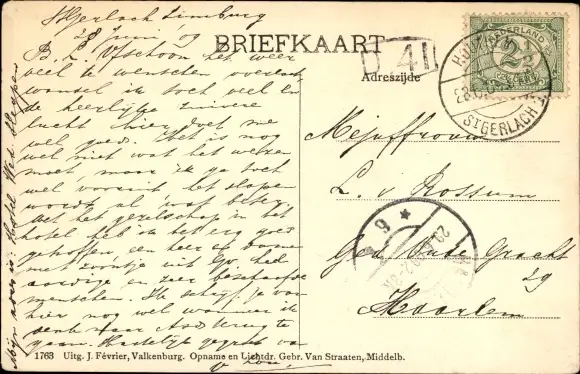 St Gerlach Limburg
28 Juni '09
B. L. Ofschoon het weer
veel te wenschen overlaat
wandel ik toch veel en
de heerlijke zuivere
lucht hier doet me
veel goed. Het is nog
wel niet wat het wezen
moet maar ik ga toch
wel vooruit het slapen
wordt al veel beter.
Met het gezelschap in het
hotel heb ik het erg goed
getroffen, een heer en dame
met zoontje uit heel
aardige en zeer beschaafde
menschen. Ik schrijf je van
hier nog wel wanneer ik
denk naar terug te
gaan. Hartelijk gegroet van
Mijn adres is: Hotel Wed.
BRIEFKAART
Adreszijde
D 41
NEDERLAND
2½
CENT
ST GERLACH
Mejuffrouw
L. v Rossum
Ged. Oude Gracht
29
Haarlem
1763 Uitg. J. Février, Valkenburg. Opname en Lichtdr. Gebr. Van Straaten, Middelb.